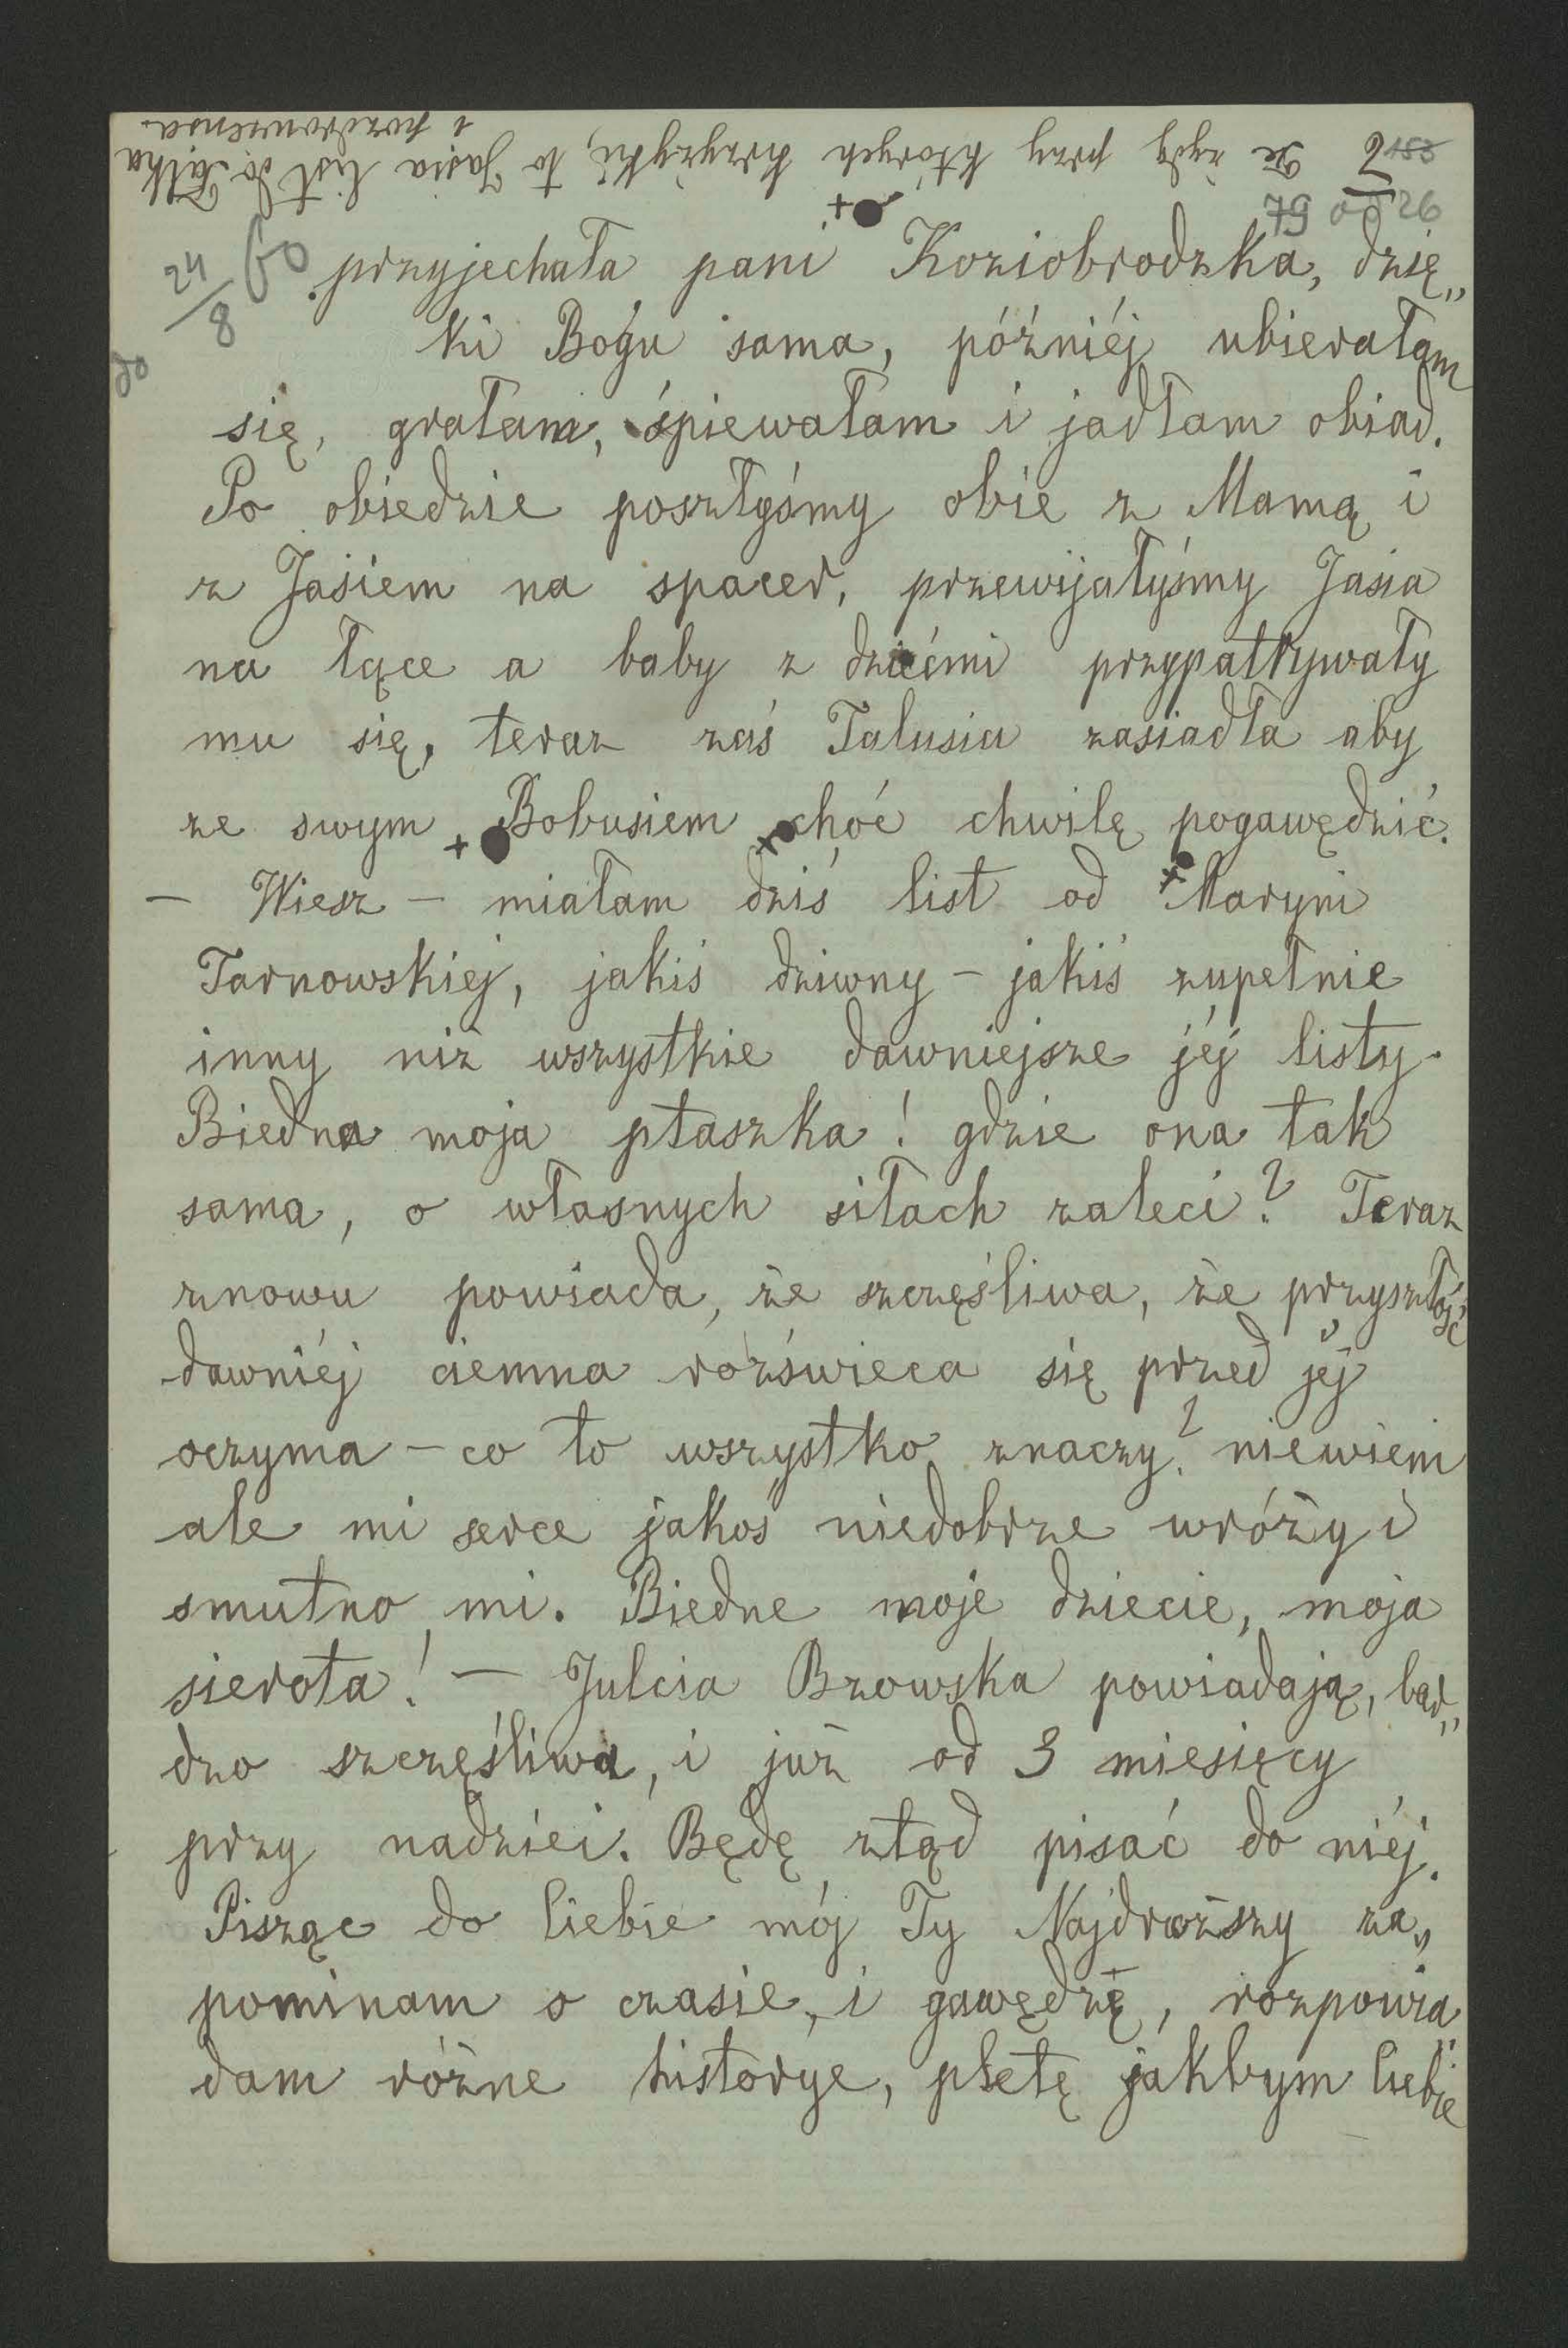 Te żydy przy których krzyżyki, to Jasia list do Tatka
i pozdrowienia.
2 153
79 26
24/8 60 przyjechała pani Koziobrodzka, dzię„
do
ki Bogu sama, późniéj ubierałam
się, grałam, śpiewałam i jadłam obiad.
Po obiedzie poszłyśmy obie z Mamą i
z Jasiem na spacer, przewijałyśmy Jasia
na łące a baby z dziećmi przypatrywały
mu się, teraz zaś Talusia zasiadła aby
ze swym Bobusiem choć chwilę pogawędzić.
– Wiesz – miałam dziś list od Maryni
Tarnowskiej, jakiś dziwny – jakiś zupełnie
inny niż wszystkie dawniejsze jéj listy.
Biedna moja ptaszka! gdzie ona tak
sama, o własnych siłach zaleci? Teraz
znowu powiada, że szczęśliwa, że przyszłość
dawniéj ciemna rozświeca się przed jéj
oczyma – co to wszystko znaczy? niewiem
ale mi serce jakoś niedobrze wróży i
smutno mi. Biedne moje dziecie, moja
sierota! – Julcia Bzowska powiadają, bar„
dzo szczęśliwa, i już od 3 miesięcy
przy nadziei. Będę ztąd pisać do niéj.
Pisząc do Ciebie mój Ty Najdroższy za„
pominam o czasie, i gawędzę, rozpowia„
dam różne historye, pletę jakbym Ciebie